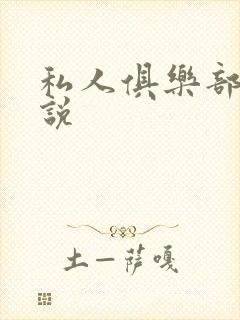 私人俱樂部
説
土一薩嘎